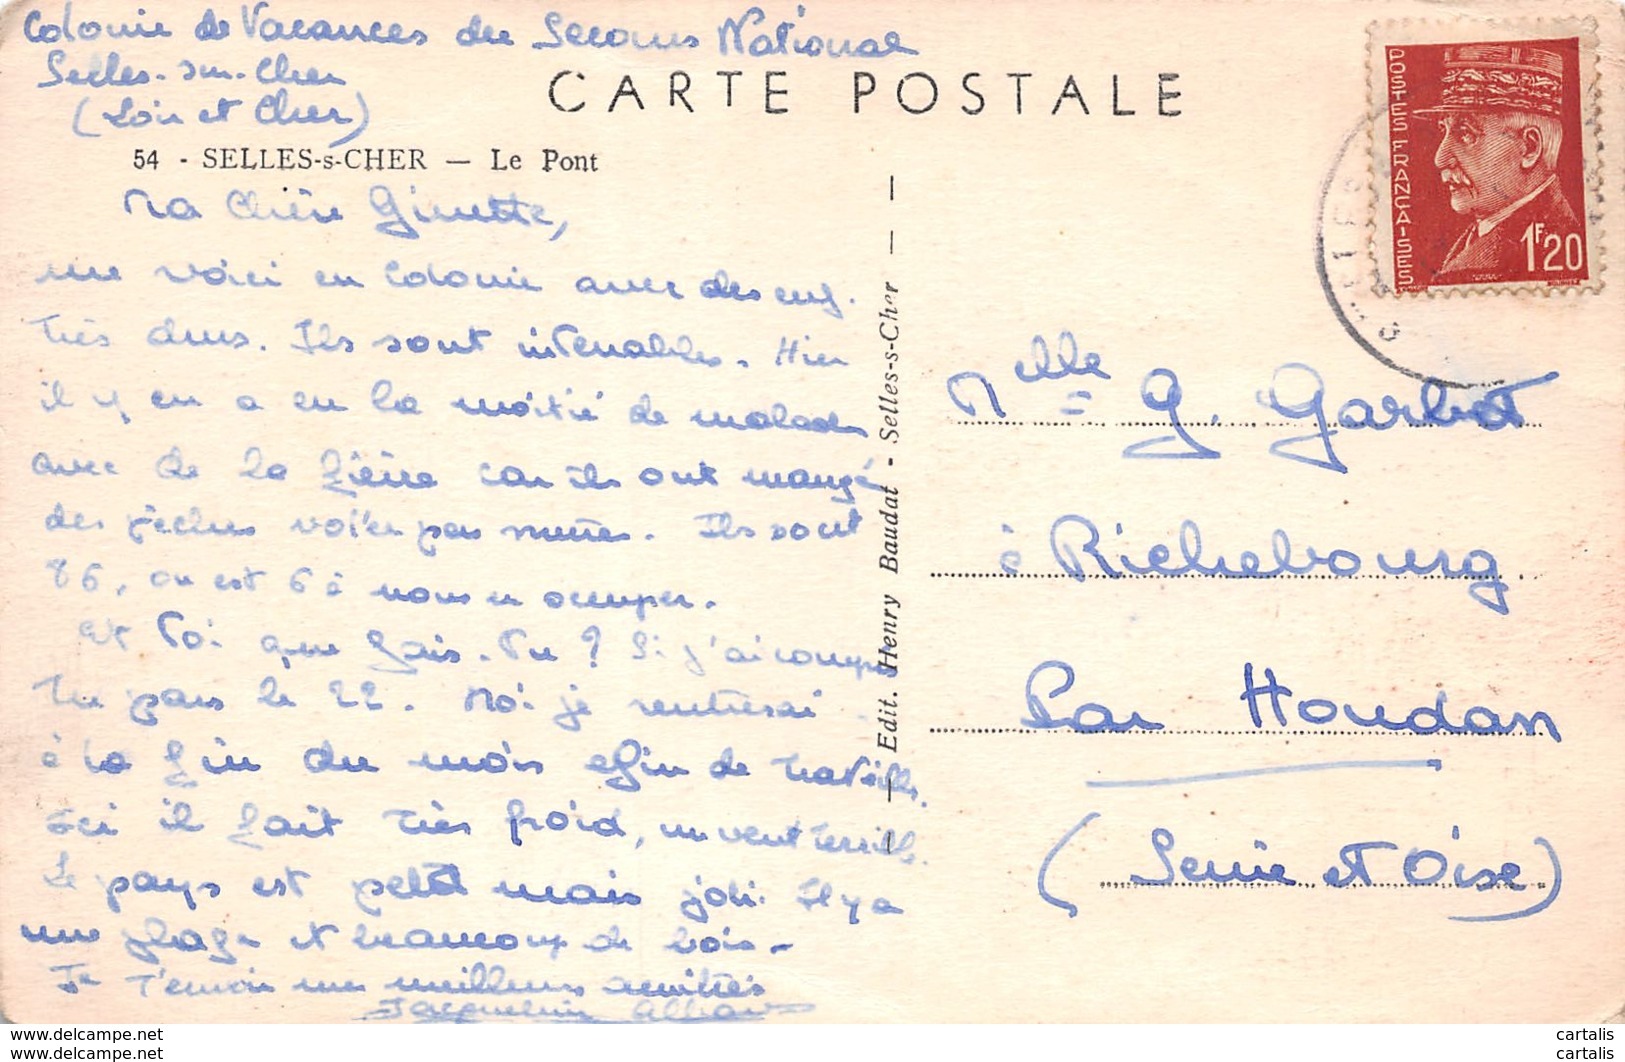 Colonie de Vacances du Secours National
Selles-sur-Cher
(Loir et Cher)
CARTE POSTALE
54 - SELLES-s-CHER — Le Pont
Ma Chère Ginette,
me voici en colonie avec des enf.
très durs. Ils sont intenables. Hier
il y en a eu la moitié de malades
avec de la fièvre car ils ont mangé
des pêches volées pas mûres. Ils sont
86, on est 6 à nous en occuper.
Et toi que fais-tu ? Si j'ai compris
tu pars le 22. Moi je rentrerai
à la fin du mois afin de travailler.
Ici il fait très froid, un vent terrible.
Le pays est petit mais joli. Il y a
une plage et beaucoup de bois -
Je t'envoie mes meilleures amitiés
Jacqueline
— Edit. Henry Baudat - Selles-s-Cher —
POSTES FRANÇAISES
1F20
Melle G. Garbot
à Richebourg
Par Houdan
(Seine et Oise)
delcampe.net
delcampe.net
cartalis
cartalis